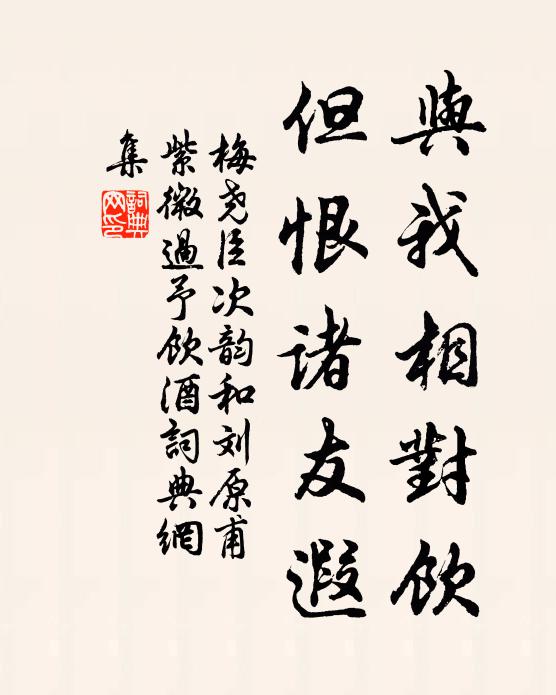 與我相對飲
但恨諸友遐
梅尧臣次韵和刘原甫
紫微過予飲酒詞典網
集
詞典網印